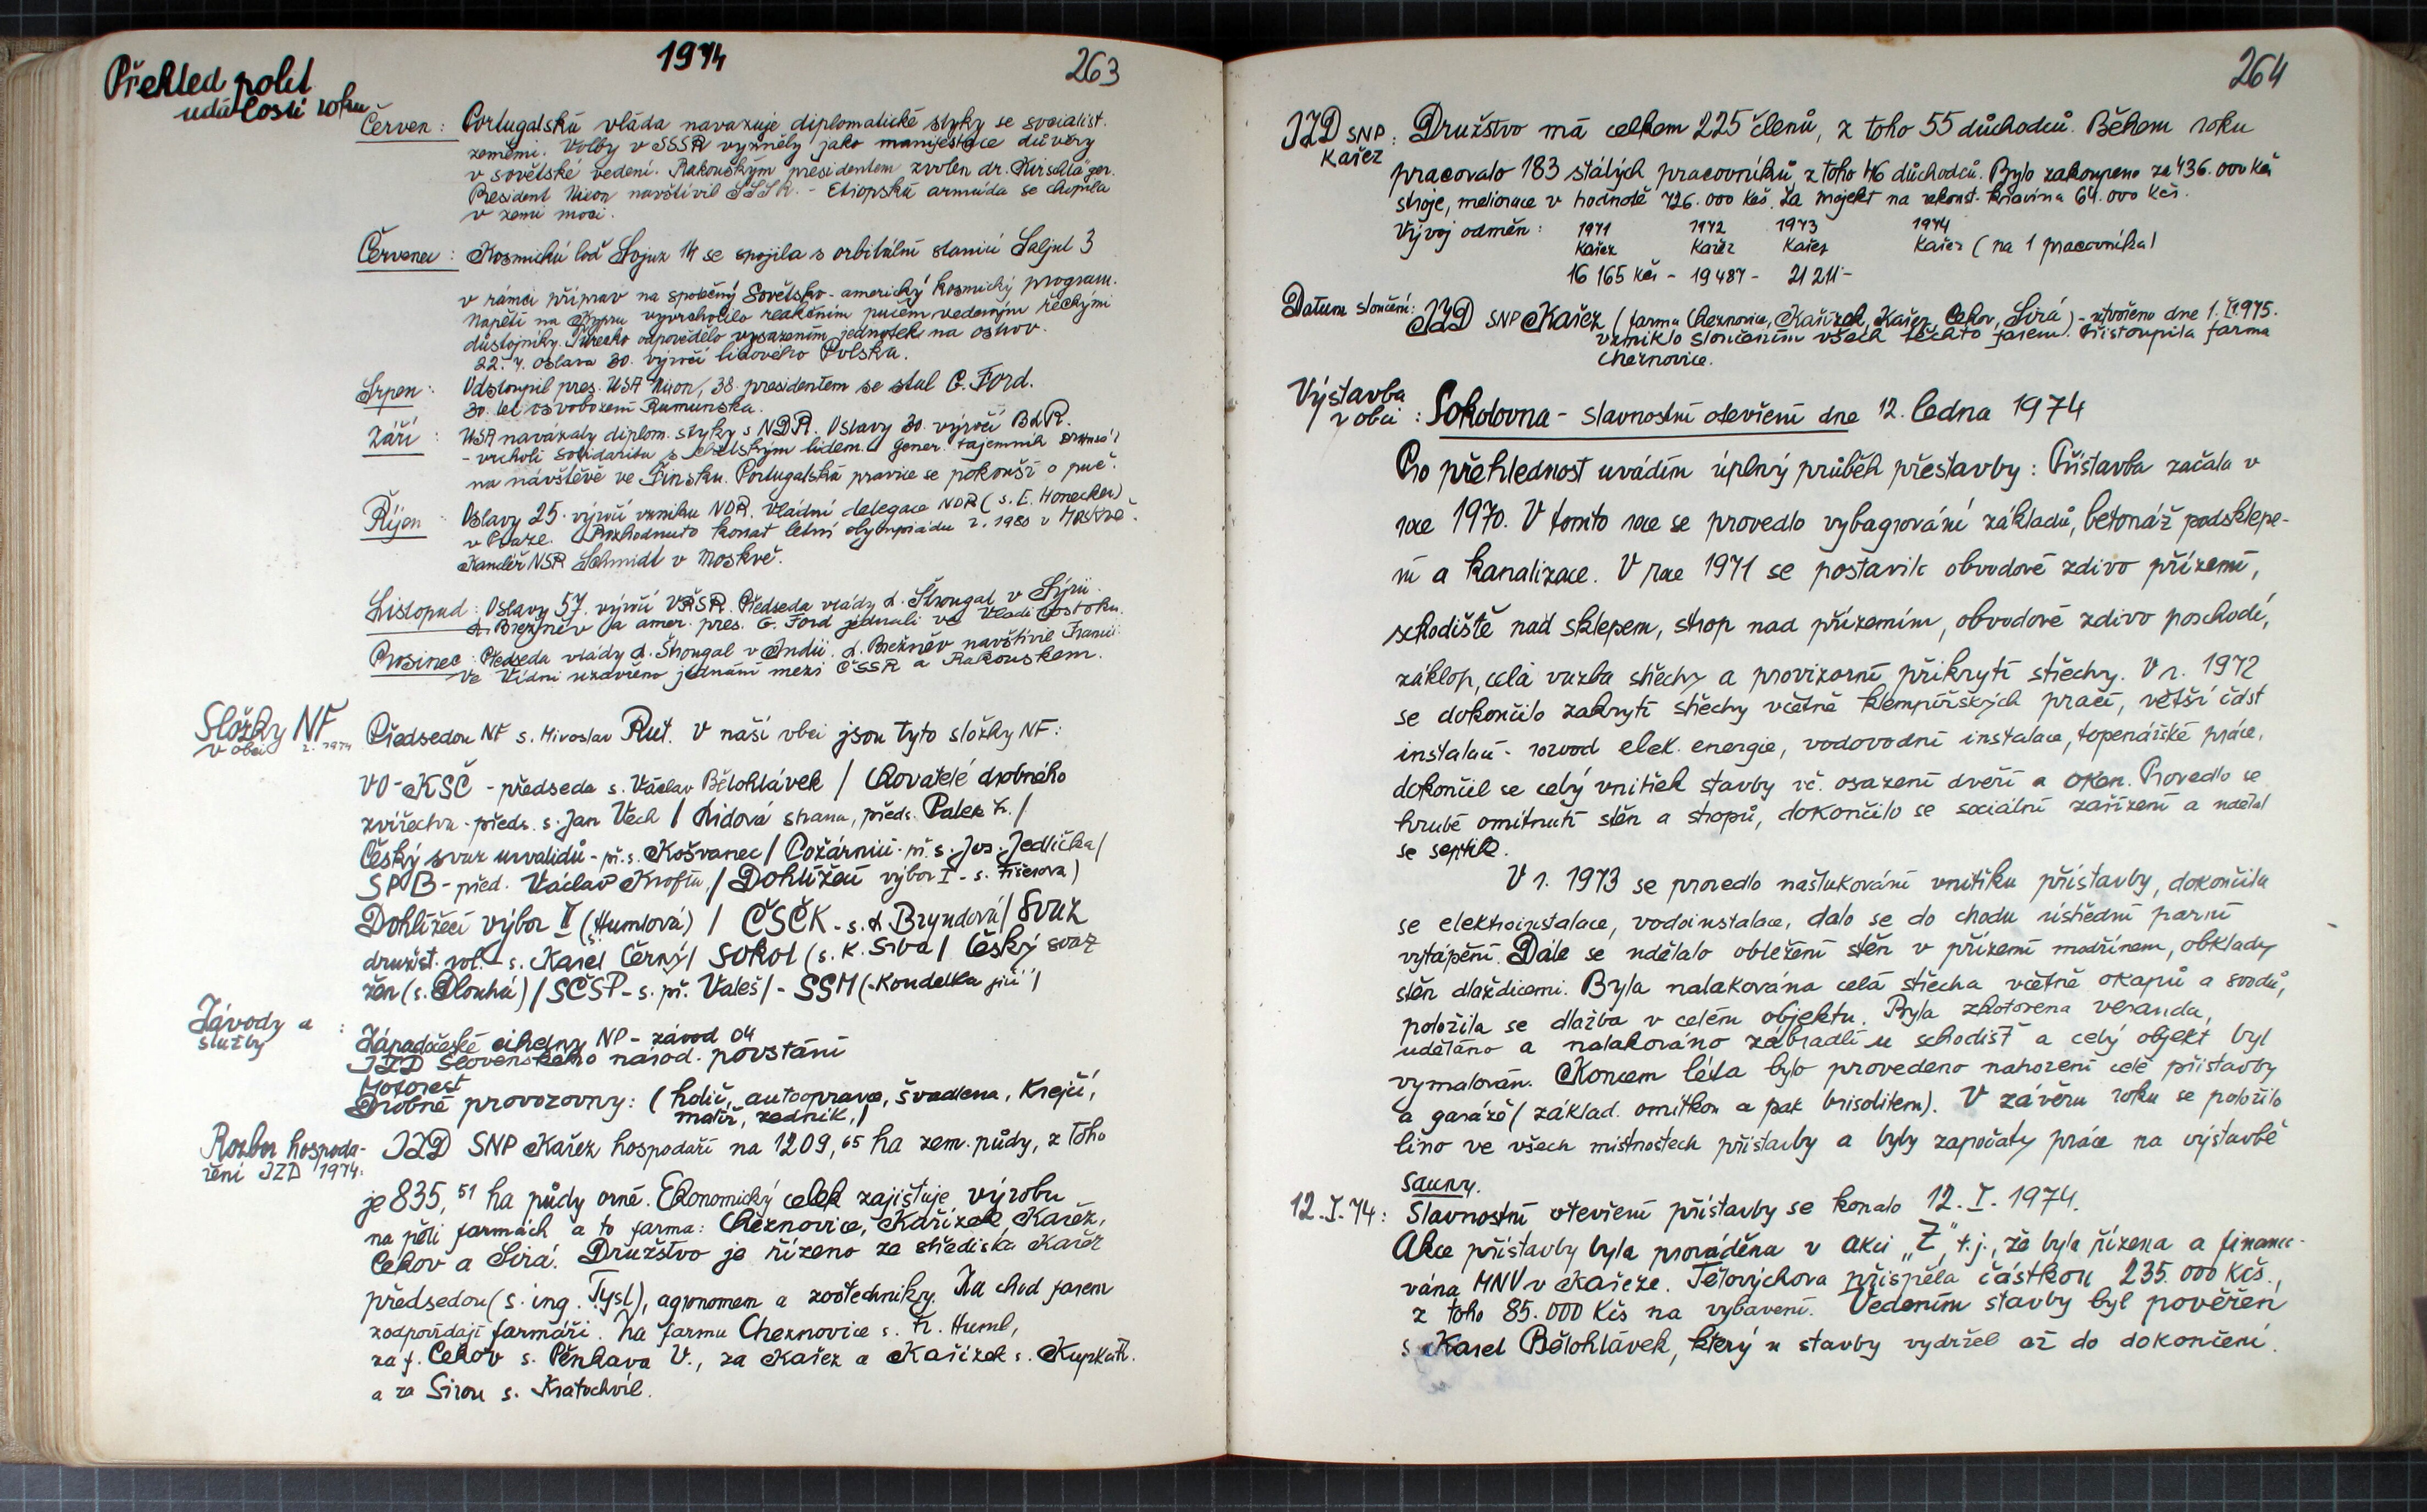 1974
263
Přehled polit
událostí roku
Červen : Portugalská vláda navazuje diplomatické styky se socialist.
zeměmi. Volby v SSSR vyzněly jako manifestace důvěry
v sovětské vedení. Rakouským presidentem zvolen dr. Kirschläger.
President Nixon navštívil SSSR. - Etiopská armáda se chopila
v zemi moci.
Červenec : Kosmická loď Sojuz 14 se spojila s orbitální stanicí Saljut 3
v rámci příprav na společný Sovětsko-americký kosmický program.
Napětí na Kypru vyvrcholilo reakčním pučem vedeným řeckými
důstojníky. Turecko odpovědělo vysazením jednotek na ostrov.
22. 7. oslava 30. výročí lidového Polska.
Srpen : Odstoupil pres. USA Nixon, 38. presidentem se stal G. Ford.
30. let osvobození Rumunska.
Září : USA navázaly diplom. styky s NDR. Oslavy 30. výročí BLR.
- vrcholí solidarita s chilským lidem. Gener. tajemník
na návštěvě ve Finsku. Portugalská pravice se pokouší o puč.
Říjen : Oslavy 25. výročí vzniku NDR. Vládní delegace NDR (s. E. Honecker)
v Praze. Rozhodnuto konat letní olympiádu r. 1980 v Moskvě.
Kancléř NSR Schmidt v Moskvě.
Listopad : Oslavy 57. výročí VŘSR. Předseda vlády L. Štrougal v Sýrii.
L. Brežněv a amer. pres. G. Ford jednali ve Vladivostoku.
Prosinec : Předseda vlády L. Štrougal v Indii. L. Brežněv navštívil Francii.
Ve Vídni uzavřeno jednání mezi ČSSR a Rakouskem.
Složky NF
v obci r. 1974
Předsedou NF s. Miroslav Rut. V naší obci jsou tyto složky NF:
VO-KSČ - předseda s. Václav Bělohlávek / Chovatelé drobného
zvířectva - předs. s. Jan Vech / Lidová strana, předs. Palek Fr. /
Český svaz invalidů - př. s. Košvanec / Požárníci - př. s. Jos. Jedlička /
SPB - před. Václav Krofta / Dohlížecí výbor I - s. Fišerová)
Dohlížecí výbor II (s. Humlová) / ČSČK - s. L. Bryndová / Svaz
družst. rol. - s. Karel Černý / SOKOL (s. K. Srba / Český svaz
žen (s. Dlouhá) / SČSP - s. př. Valeš / - SSM (-Koudelka Jiří /
Závody a :
služby
Západočeské cihelny NP - závod 04
JZD Slovenského národ. povstání
Motorest
Drobné provozovny: (holič, autooprava, švadlena, krejčí,
malíř, zedník, /
Rozbor hospoda-
ření JZD 1974:
JZD SNP Kařez hospodaří na 1209,65 ha zem. půdy, z toho
je 835,51 ha půdy orné. Ekonomický celek zajišťuje výrobu
na pěti farmách a to farma: Cheznovice, Kařízek, Kařez,
Cekov a Sirá. Družstvo je řízeno ze střediska Kařez
předsedou (s. ing. Tysl), agronomem a zootechniky. Za chod farem
zodpovídají farmáři. Za farmu Cheznovice s. Fr. Huml,
za f. Cekov s. Pěnkava V., za Kařez a Kařízek s. Kupka Fr.
a za Sirou s. Kratochvíl.
264
JZD SNP :
Kařez
Družstvo má celkem 225 členů, z toho 55 důchodců. Během roku
pracovalo 183 stálých pracovníků, z toho 46 důchodců. Bylo zakoupeno za 436.000 Kčs
stroje, meliorace v hodnotě 726.000 Kčs. Za projekt na rekonst. kravína 64.000 Kčs.
Vývoj odměn : 1971 1972 1973 1974
Kařez Kařez Kařez Kařez (na 1 pracovníka)
16 165 Kčs - 19 487 - 21 211 -
Datum sloučení: JZD SNP Kařez (farma Cheznovice, Kařízek, Kařez, Cekov, Sirá) - utvořeno dne 1. I. 1975.
vzniklo sloučením všech těchto farem. Přistoupila farma
Cheznovice.
Výstavba
v obci : Sokolovna - slavnostní otevření dne 12. ledna 1974
Pro přehlednost uvádím úplný průběh přestavby: Přístavba začala v
roce 1970. V tomto roce se provedlo vybagrování základů, betonáž podsklepe-
ní a kanalizace. V roce 1971 se postavilo obvodové zdivo přízemí,
schodiště nad sklepem, strop nad přízemím, obvodové zdivo poschodí,
záklop, celá vazba střechy a provizorní přikrytí střechy. V r. 1972
se dokončilo zakrytí střechy včetně klempířských prací, větší část
instalací - rozvod elek. energie, vodovodní instalace, topenářské práce,
dokončil se celý vnitřek stavby vč. osazení dveří a oken. Provedlo se
hrubé omítnutí stěn a stropů, dokončilo se sociální zařízení a udělal
se septik.
V r. 1973 se provedlo naštukování vnitřku přístavby, dokončila
se elektroinstalace, vodoinstalace, dalo se do chodu ústřední parní
vytápění. Dále se udělalo obležení stěn v přízemí modřínem, obklady
stěn dlaždicemi. Byla nalakována celá střecha včetně okapů a svodů,
položila se dlažba v celém objektu. Byla zhotovena veranda,
uděláno a nalakováno zábradlí u schodišť a celý objekt byl
vymalován. Koncem léta bylo provedeno nahození celé přístavby
a garáže (základ. omítkou a pak brisolitem). V závěru roku se položilo
lino ve všech místnostech přístavby a byly započaty práce na výstavbě
sauny.
12. I. 74: Slavnostní otevření přístavby se konalo 12. I. 1974.
Akce přístavby byla prováděna v akci „Z" t.j., že byla řízena a financo-
vána MNV v Kařeze. Tělovýchova přispěla částkou 235.000 Kčs.,
z toho 85.000 Kčs na vybavení. Vedením stavby byl pověřen
s. Karel Bělohlávek, který u stavby vydržel až do dokončení.